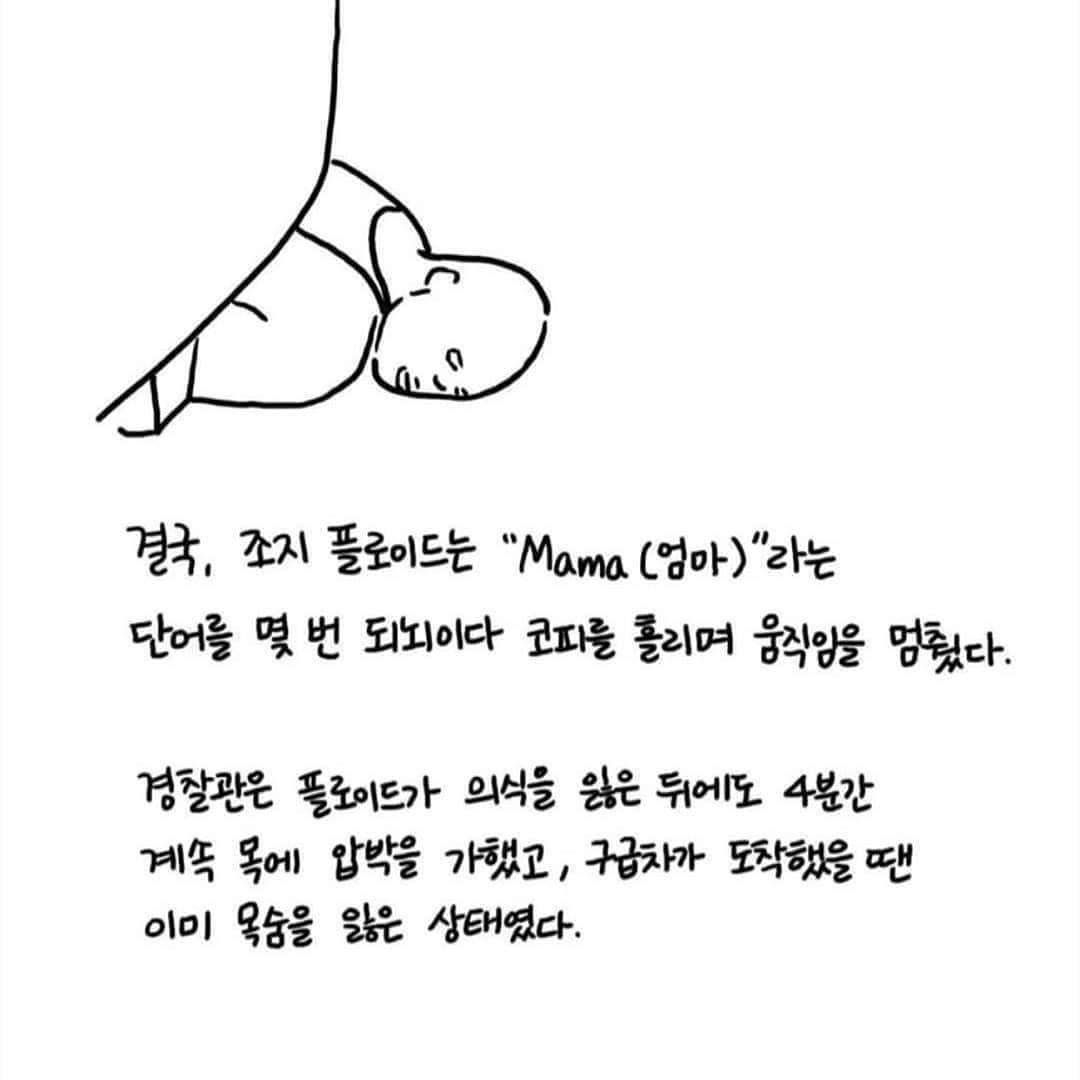 결국, 조지 플로이드는 "Mama (엄마)"라는
단어를 몇 번 되뇌이다 코피를 흘리며 움직임을 멈췄다.
경찰관은 플로이드가 의식을 잃은 뒤에도 4분간
계속 목에 압박을 가했고, 구급차가 도착했을 땐
이미 목숨을 잃은 상태였다.